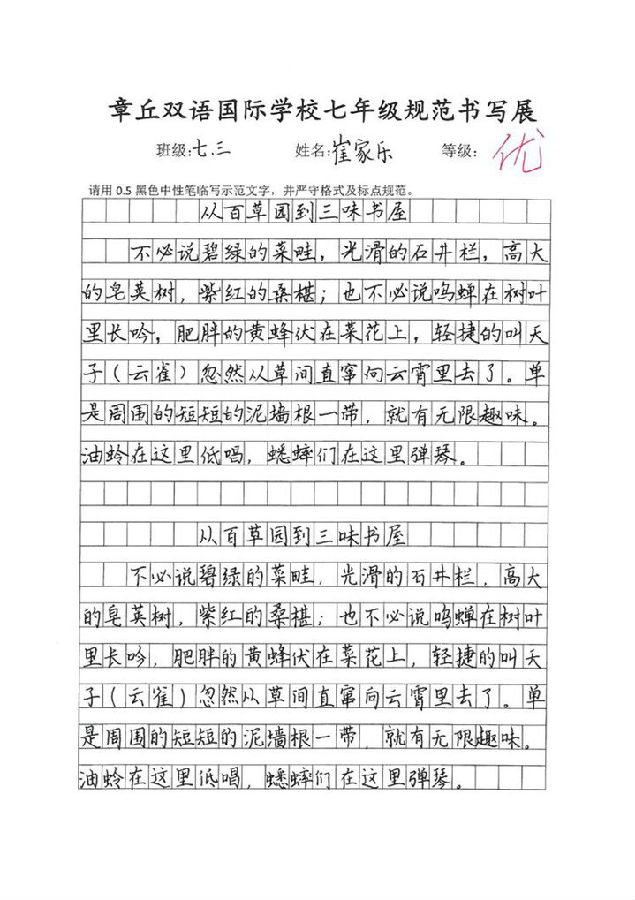 章丘双语国际学校七年级规范书写展
班级:七.三 姓名:崔家乐 等级:优
请用 0.5 黑色中性笔临写示范文字，并严守格式及标点规范。
从百草园到三味书屋
不必说碧绿的菜畦，光滑的石井栏，高大
的皂荚树，紫红的桑椹；也不必说鸣蝉在树叶
里长吟，肥胖的黄蜂伏在菜花上，轻捷的叫天
子（云雀）忽然从草间直窜向云霄里去了。单
是周围的短短的泥墙根一带，就有无限趣味。
油蛉在这里低唱，蟋蟀们在这里弹琴。
从百草园到三味书屋
不必说碧绿的菜畦，光滑的石井栏，高大
的皂荚树，紫红的桑椹；也不必说鸣蝉在树叶
里长吟，肥胖的黄蜂伏在菜花上，轻捷的叫天
子（云雀）忽然从草间直窜向云霄里去了。单
是周围的短短的泥墙根一带，就有无限趣味。
油蛉在这里低唱，蟋蟀们在这里弹琴。